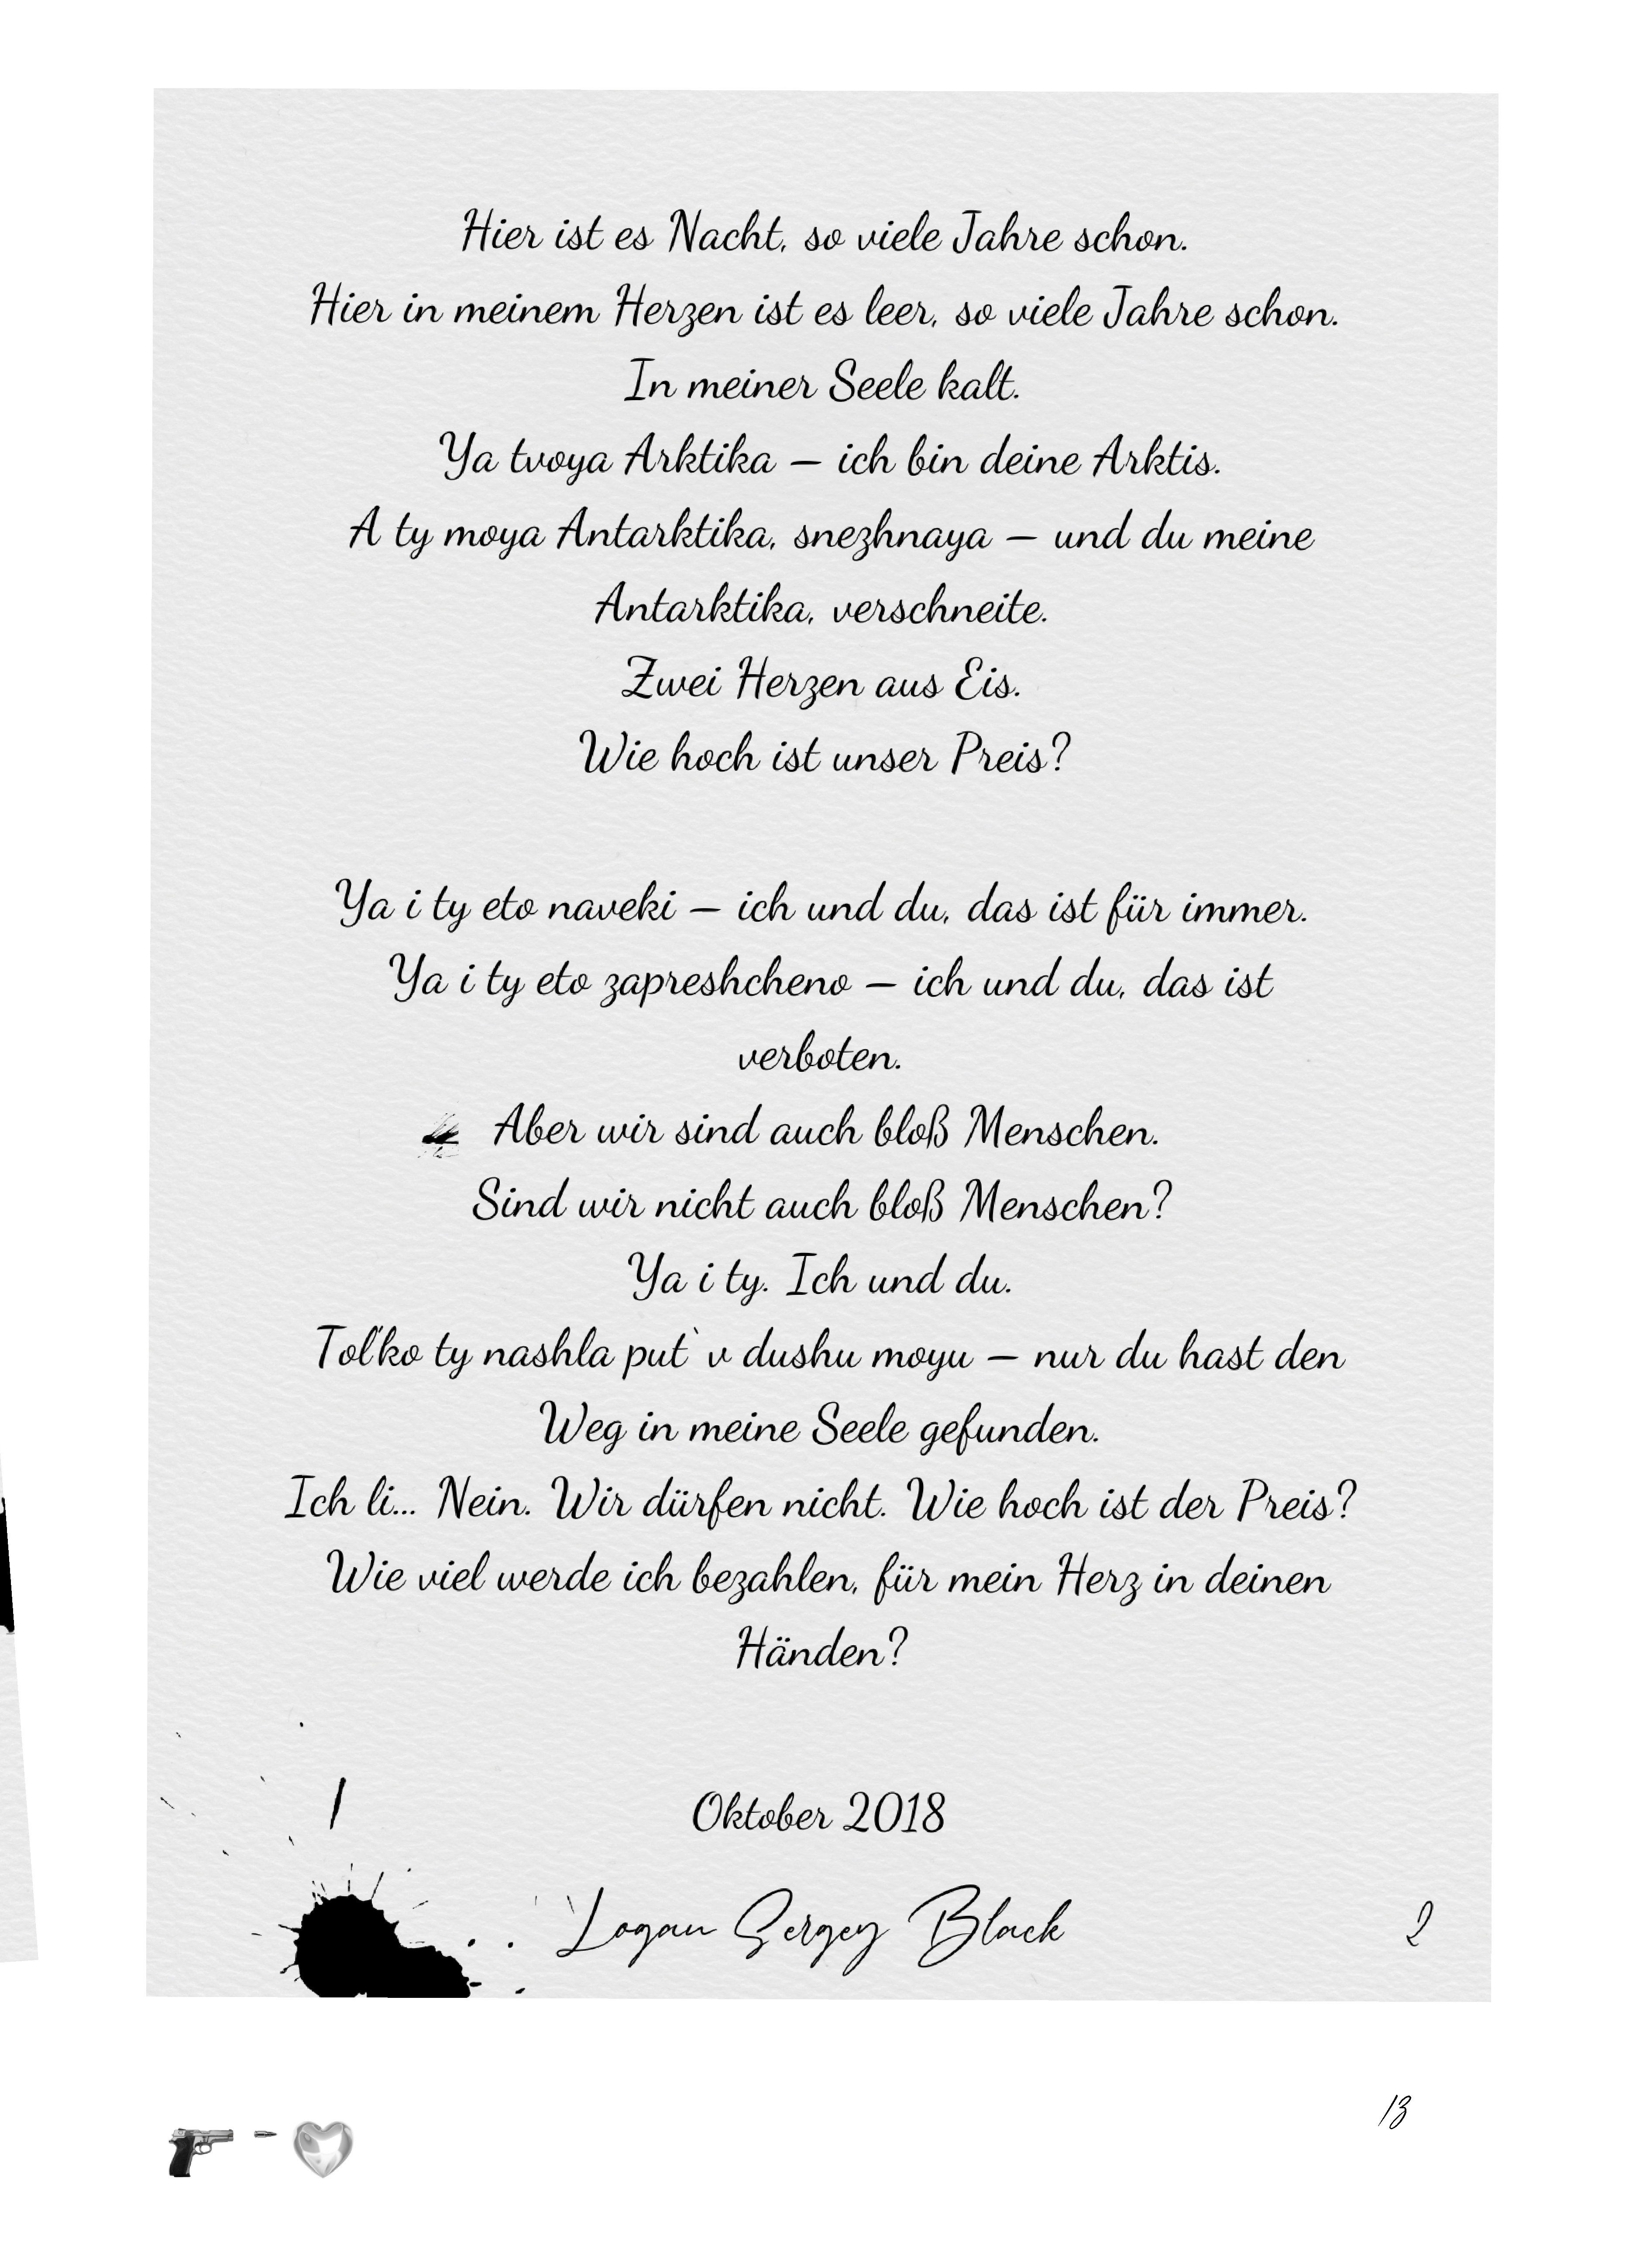 Hier ist es Nacht, so viele Jahre schon.
Hier in meinem Herzen ist es leer, so viele Jahre schon.
In meiner Seele kalt.
Ya tvoya Arktika – ich bin deine Arktis.
A ty moya Antarktika, snezhnaya – und du meine
Antarktika, verschneite.
Zwei Herzen aus Eis.
Wie hoch ist unser Preis?
Ya i ty eto naveki – ich und du, das ist für immer.
Ya i ty eto zapreshcheno – ich und du, das ist
verboten.
Aber wir sind auch bloß Menschen.
Sind wir nicht auch bloß Menschen?
Ya i ty. Ich und du.
Tol'ko ty nashla put` v dushu moyu – nur du hast den
Weg in meine Seele gefunden.
Ich li... Nein. Wir dürfen nicht. Wie hoch ist der Preis?
Wie viel werde ich bezahlen, für mein Herz in deinen
Händen?
Oktober 2018
Logan Sergey Black
2
13